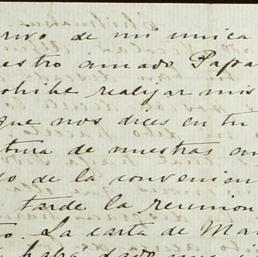 rivo de mi unica
estro amado Papa
ohibe realizar mis
que nos dices en tu
tura de nuestras
o de la convenien
tarde la reunion
to. La carta de Mar
haba dado